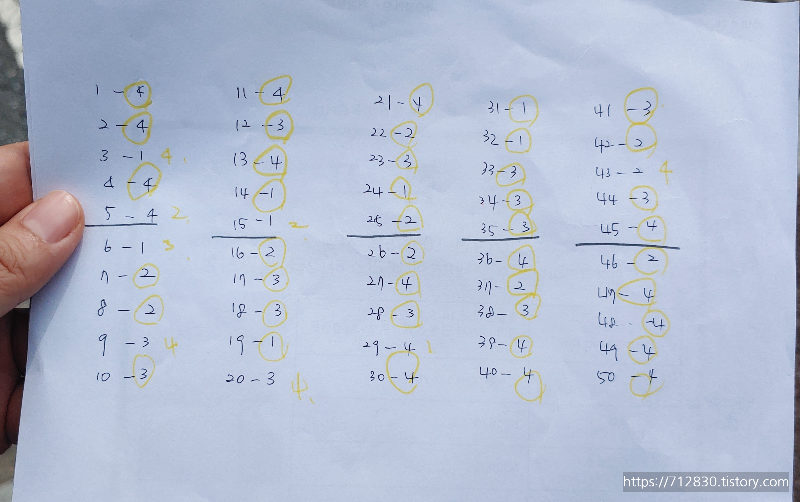 1 - 4
2 - 4
3 - 1 4.
4 - 4
5 - 4 2.
6 - 1 3.
7 - 2
8 - 2
9 - 3 4
10 - 3
11 - 4
12 - 3
13 - 4
14 - 1
15 - 1 2
16 - 2
17 - 3
18 - 3
19 - 1
20 - 3 4.
21 - 4
22 - 2
23 - 3
24 - 1
25 - 2
26 - 2
27 - 4
28 - 3
29 - 4 1
30 - 4
31 - 1
32 - 1
33 - 3
34 - 3
35 - 3
36 - 4
37 - 2
38 - 3
39 - 4
40 - 4
41 - 3
42 - 2
43 - 2 4
44 - 3
45 - 4
46 - 2
47 - 4
48 - 4
49 - 4
50 - 4
https://712830.tistory.com